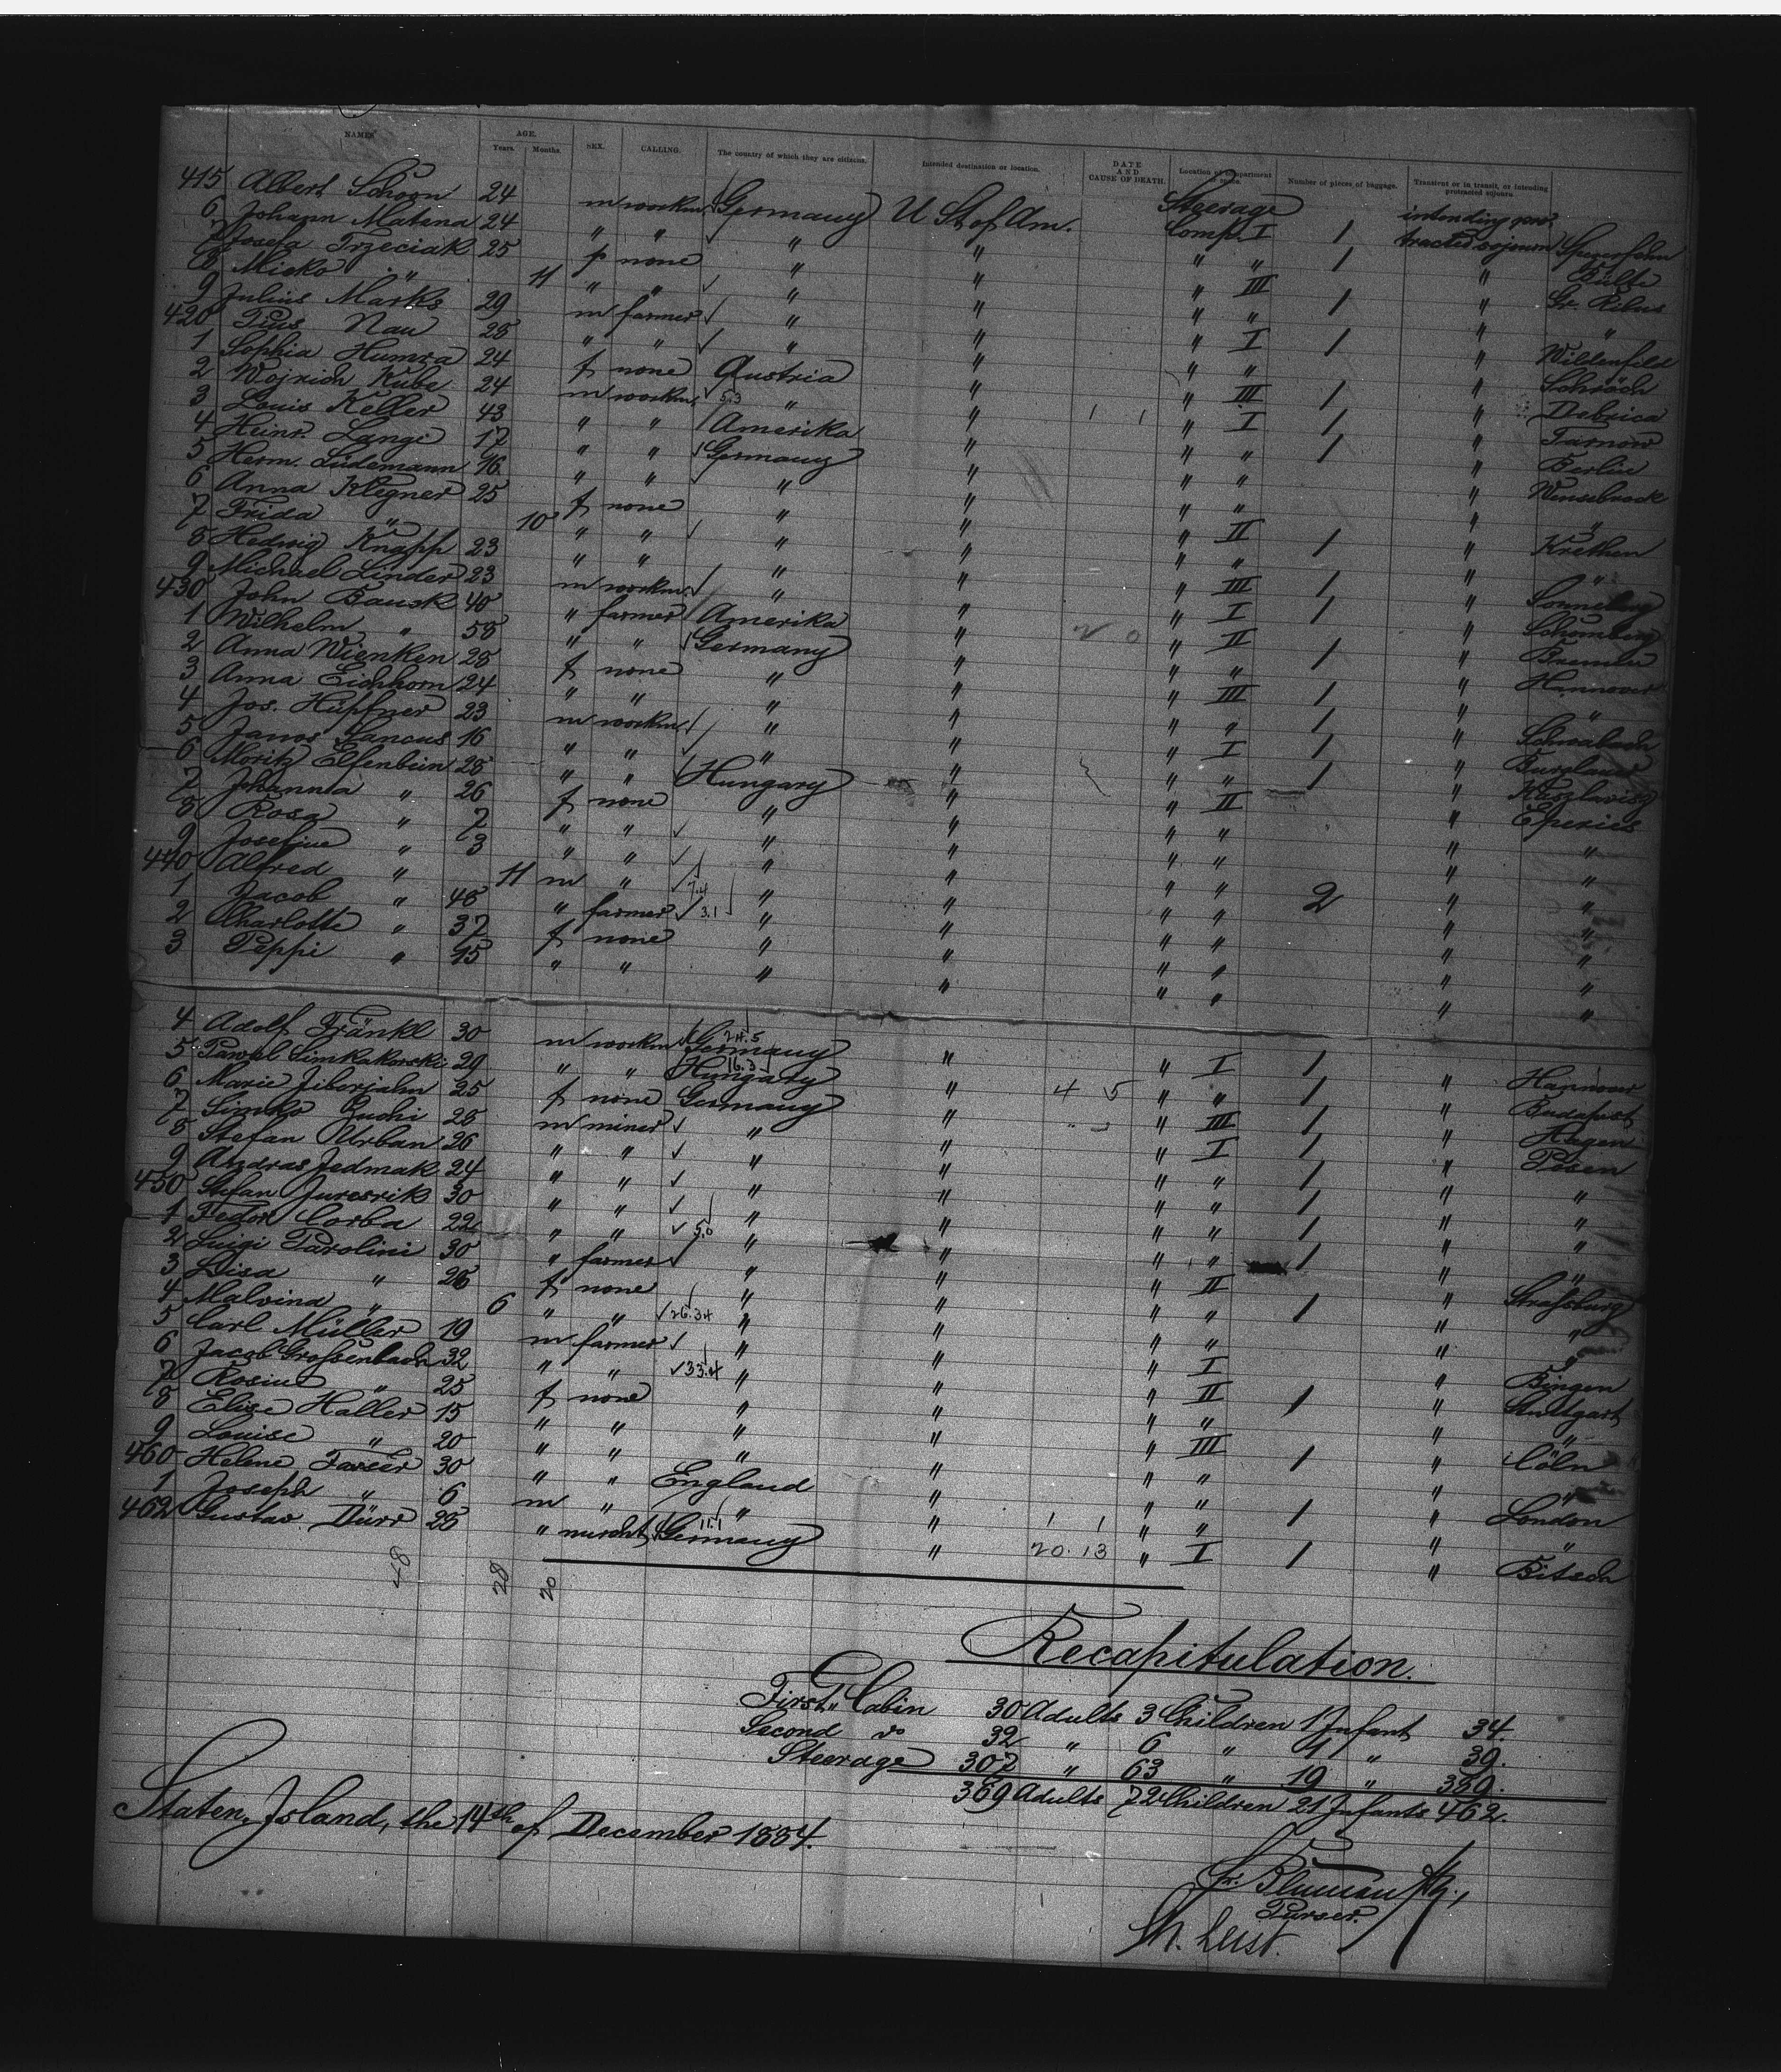 NAMES AGE. Years. Months. SEX. CALLING. The country of which they are citizens. Intended destination or location. DATE AND CAUSE OF DEATH. Location of compartment or space. Number of pieces of baggage. Transient or in transit, or intending protracted sojourn.
415 Albert Schoon 24 m workm. Germany U St of Am. Steerage Comp. I 1 intending protracted sojourn
6 Johann Matena 24 " " " " " " 1 "
7 Josefa Trzeciak 25 f none " " " III 1 " Gr. Ribus
8 Misko " 11 " " " " " " " "
9 Julius Marks 29 m farmer " " " I 1 " Willenfeld
420 Pius Nau 28 " " " " " " 1 "
1 Sophia Humra 24 f none Austria " " III 1 " Debrica
2 Wojrich Kube 24 m workm. 5.3 " " " I 1 " Tarnow
3 Louis Keller 43 " " Amerika " " " 1 " Berlin
4 Heinr. Lange 17 " " Germany " " " "
5 Herm. Lüdemann 16 " " " " " " " "
6 Anna Klegner 25 f none " " " II 1 " Krethen
7 Frida " 10 " " " " " " " "
8 Hedwig Knapp 23 " " " " " III 1 " Sonneberg
9 Michael Linder 23 m workm. " " " I 1 " Schomberg
430 John Bausk 40 " farmer Amerika " " II 1 " Bremen
1 Wilhelm " 58 " " Germany " " " " Hannover
2 Anna Wienken 28 f none " " " III 1 " "
3 Anna Eichhorn 24 " " " " " " 1 " Schwabach
4 Jos. Hüpfner 23 m workm. " " " I 1 "
5 Janos Lancus 16 " " " " " " 1 "
6 Moritz Elfenbein 28 " " Hungary " " II " Eperies
7 Johanna " 26 f none " " " " " "
8 Rosa " 7 " " " " " " " "
9 Josefine " 3 " " " " " " " "
440 Alfred " 11 m " " " " " 2 " "
1 Jacob " 48 " farmer 3.1 " " " " " "
2 Charlotte " 37 f none " " " " " "
3 Peppi " 15 " " " " " " " "
4 Adolf Fränkl 30 m workm Germany " " I 1 " Hannover
5 Pawel Simkakorski 29 " " Hungary " " " 1 " Budapest
6 Marie Ziberjahn 25 f none Germany " 4 5 " III 1 " Hagen
7 Simko Zuchi 28 m miner " " " I 1 " Posen
8 Stefan Urban 26 " " " " " " 1 " "
9 Andras Jedmak 24 " " " " " " 1 " "
450 Stefan Juresrik 30 " " " " " " 1 " "
1 Fedor Corba 22 " " 5.0 " " " " 1 " "
2 Luigi Parolini 30 " farmer " " " II 1 " Strassburg
3 Lisa " 26 f none " " " " " "
4 Malvina " 6 " " 26.34 " " " " " "
5 Carl Müller 19 m farmer " " " I " Bingen
6 Jacob Grossenbach 32 " " 33.4 " " " II 1 " Stuttgart
7 Rosine " 25 f none " " " " " "
8 Elise Haller 15 " " " " " III 1 " Cöln
9 Louise " 20 " " " " " " " "
460 Helene Fasser 30 " " England " " " 1 " London
1 Joseph " 6 m " " " 1 1 " " " "
462 Gustav Dürr 28 " mercht Germany " 20. 13 " I 1 " Bitsch
48 28 20
Recapitulation.
First Cabin 30 Adults 3 Children 1 Infant 34.
Second do 32 " 6 " 1 " 39.
Steerage 307 " 63 " 19 " 389.
369 Adults 72 Children 21 Infants 462.
Staten Island, the 14th of December 1884.
Purser.
Th. Leist.